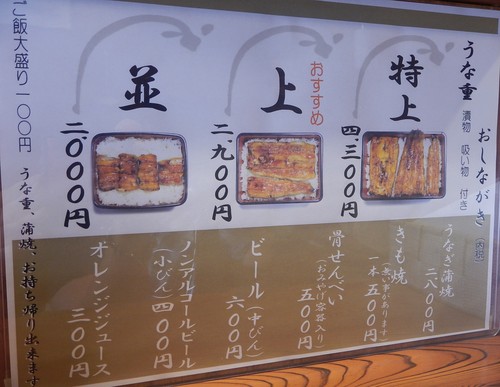 おしながき(内税)
うな重 漬物 吸い物 付き
特上
四、三〇〇円
おすすめ
上
二、九〇〇円
並
二、〇〇〇円
ご飯大盛り一〇〇円
うなぎ蒲焼
二八〇〇円
きも焼
(無い事があります)
一本 五〇〇円
骨せんべい
(おみやげ容器入り)
五〇〇円
ビール(中びん)
六〇〇円
ノンアルコールビール
(小びん)四〇〇円
オレンジジュース
三〇〇円
うな重、蒲焼、お持ち帰り出来ます